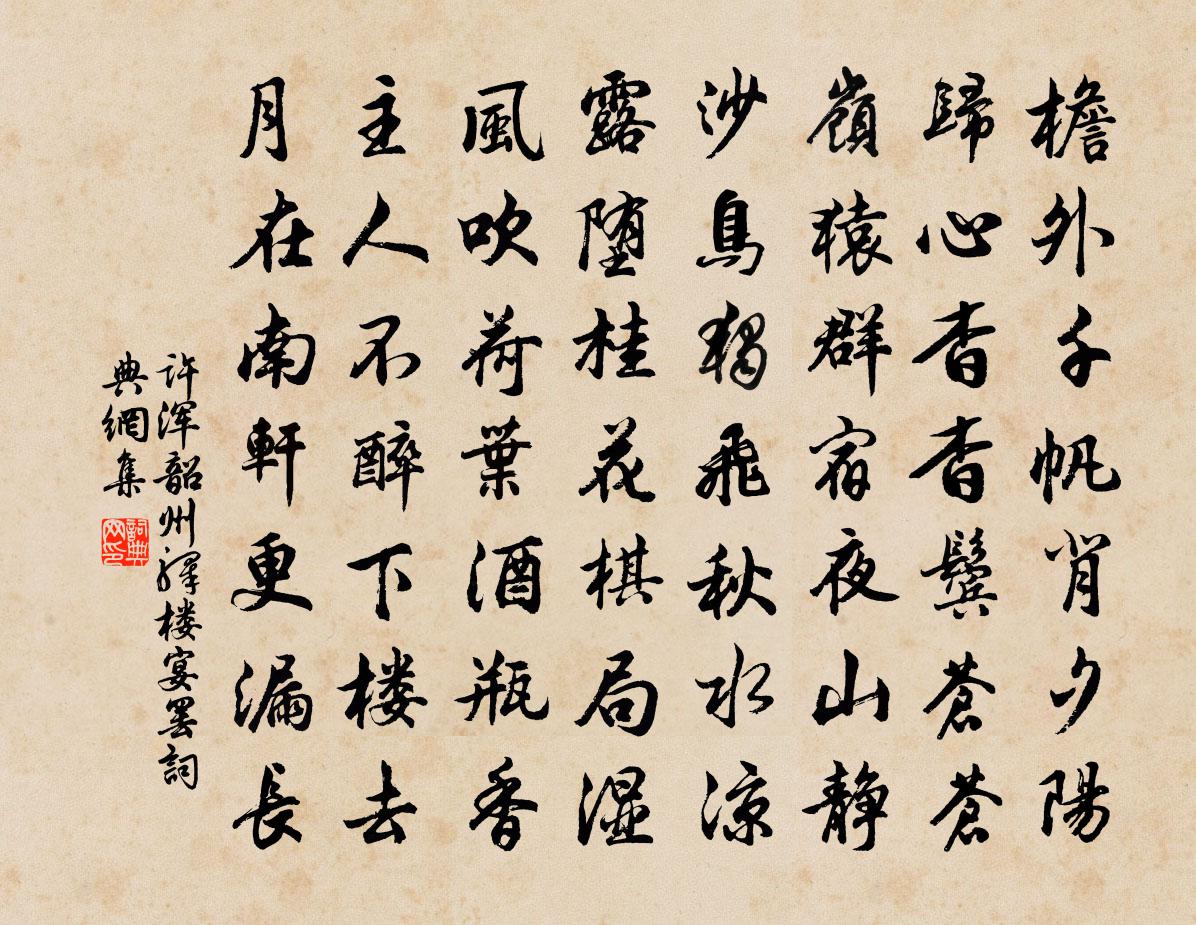 檐外千帆背夕陽
歸心杳杳鬢蒼蒼
嶺猿群宿夜山靜
沙鳥獨飛秋水涼
露墮桂花棋局濕
風吹荷葉酒瓶香
主人不醉下樓去
月在南軒更漏長
許渾韶州驛樓宴罷詞
典網集
詞典網印